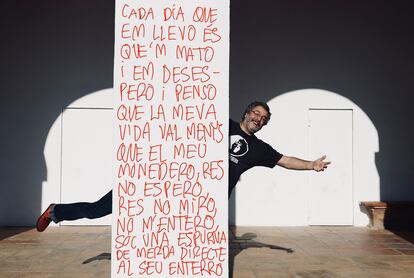 CADA DIA QUE
EM LLEVO ÉS
QUE'M MATO
I EM DESES-
PERO I PENSO
QUE LA MEVA
VIDA VAL MENYS
QUE EL MEU
MONEDERO, RES
NO ESPERO,
RES NO MIRO,
NO M'ENTERO,
SÓC UNA ESPURNA
DE MERDA DIRECTE
AL SEU ENTERRO